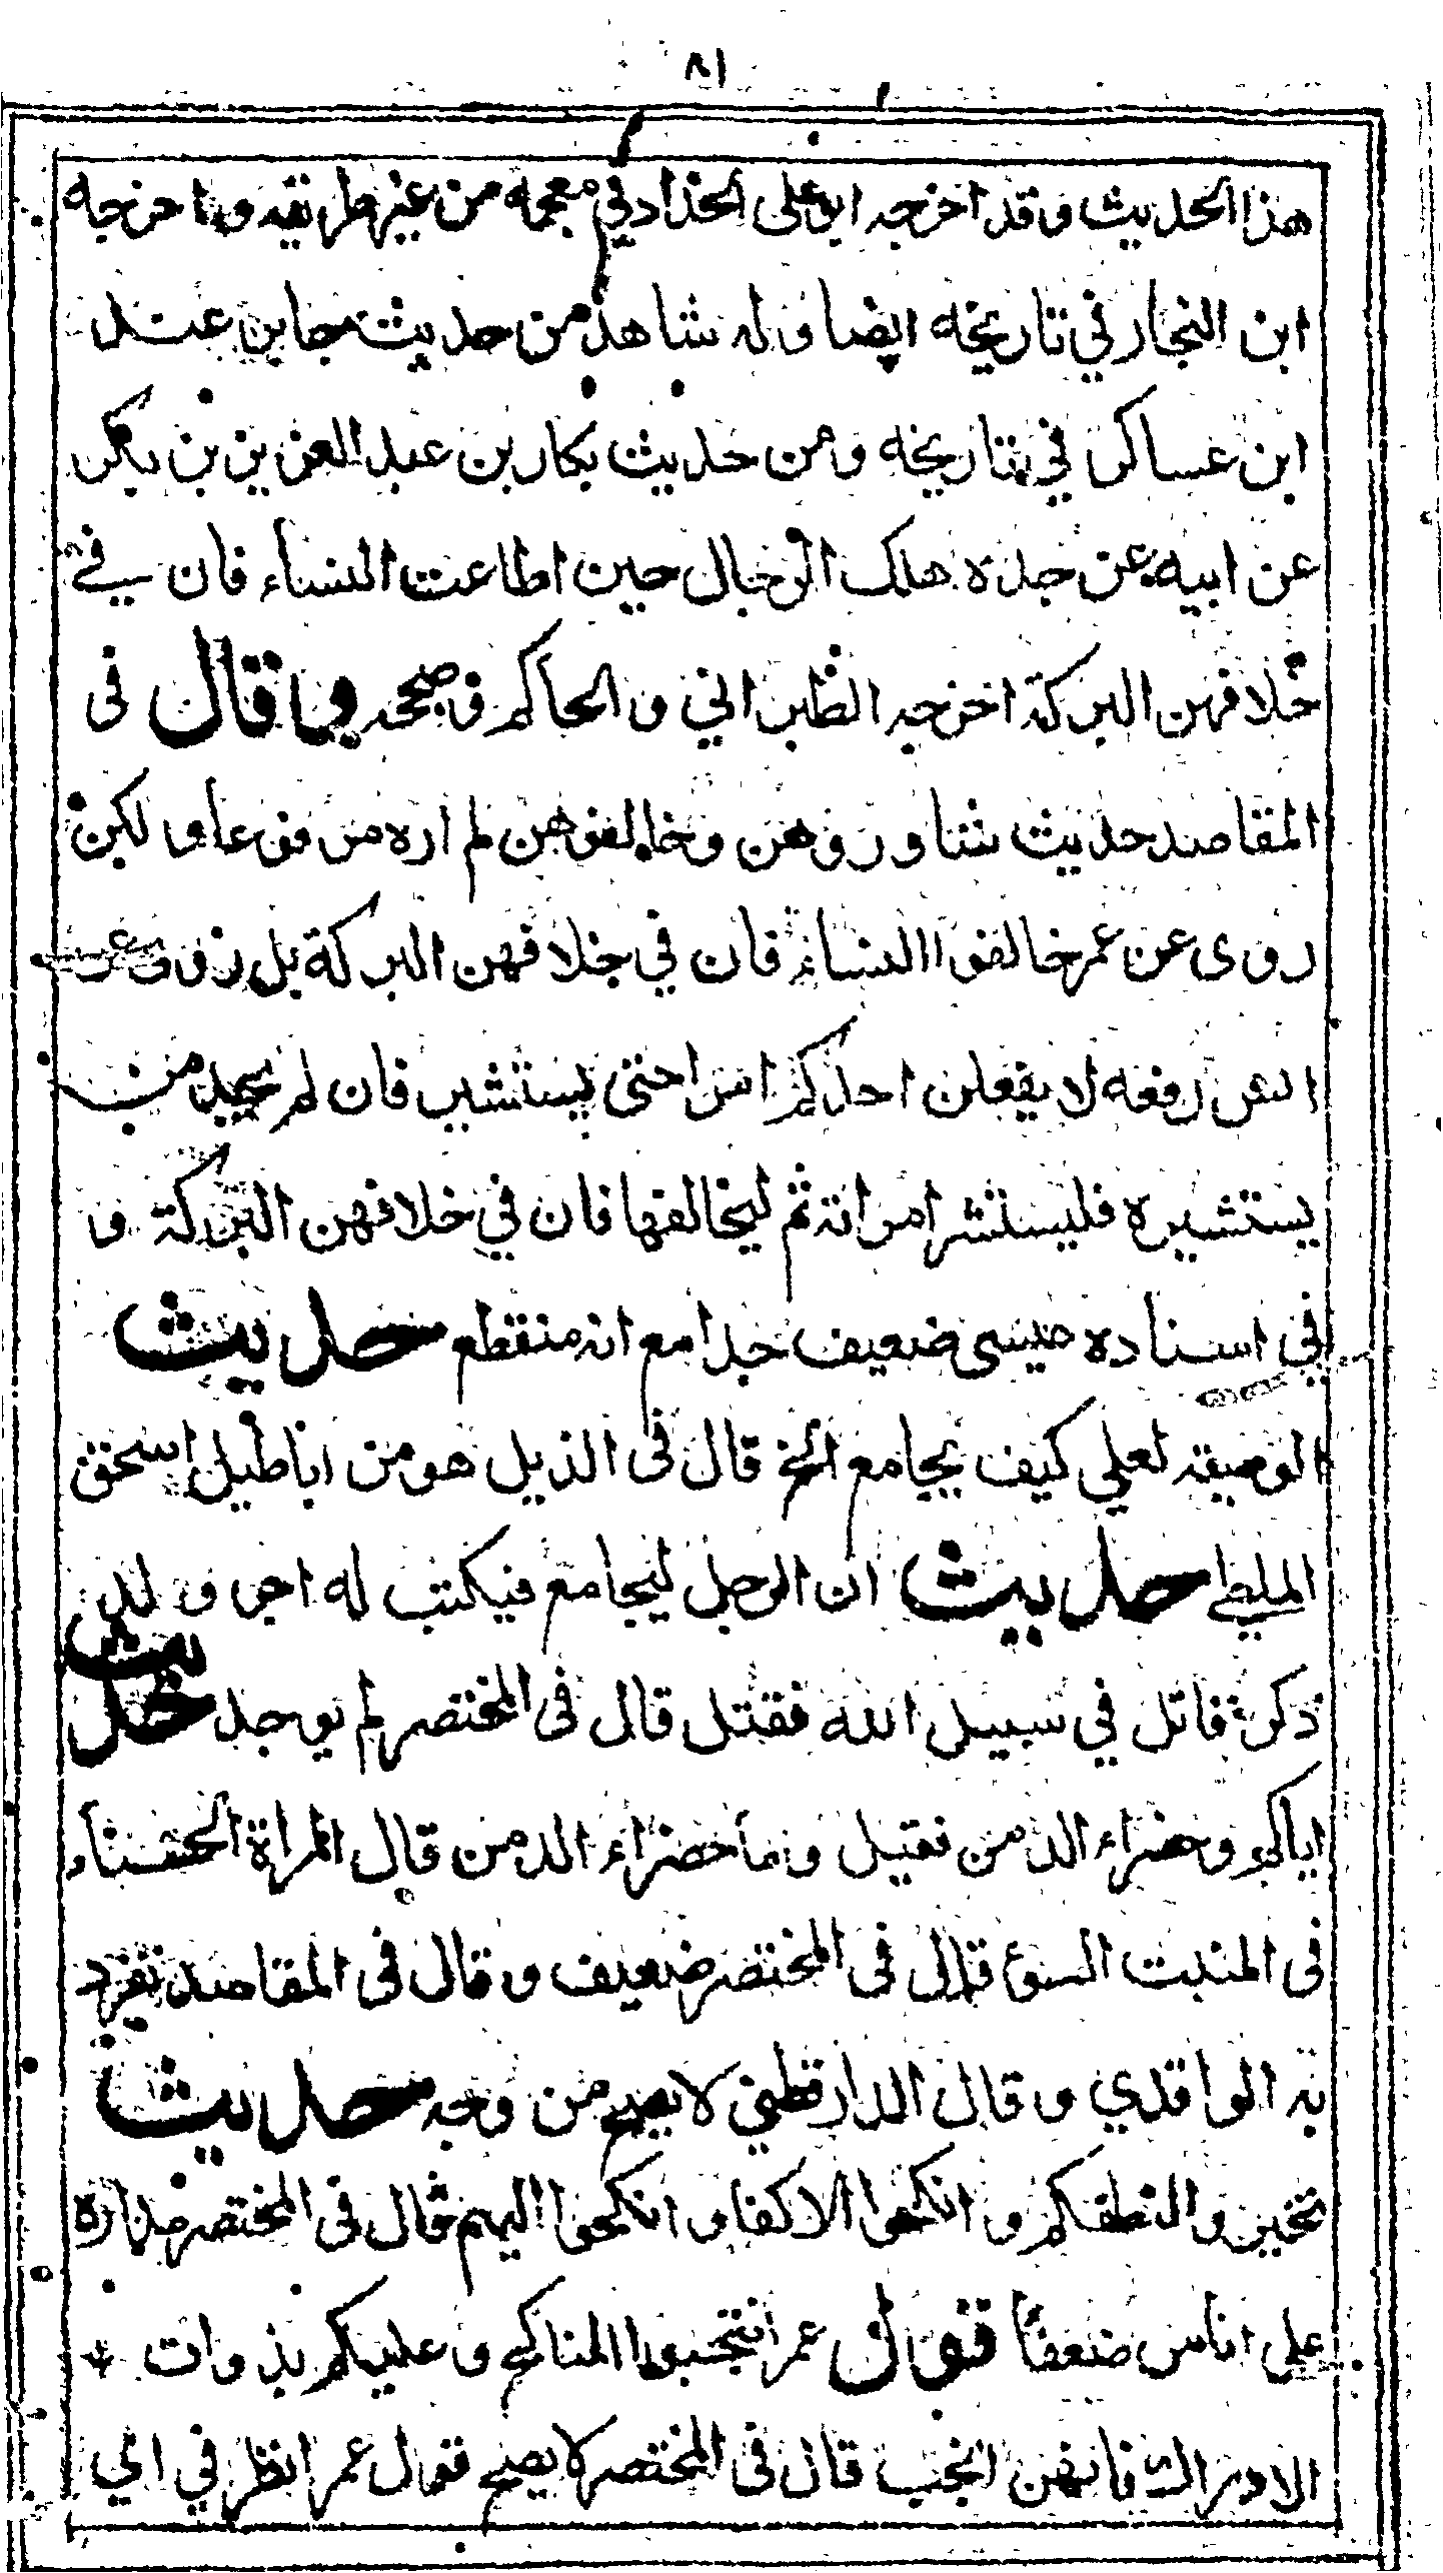 ٨١
هذا الحديث وقد اخرجه ابوعلى الحذاد في معجمه من غير طريقه و اخرجه
ابن النجار في تاريخه ايضا وله شاهد من حديث جابر عند
ابن عساكر في تاريخه ومن حديث بكار بن عبد العزيز بن بكر
عن ابيه عن جده هلك الرجال حين اطاعت النساء فان في
خلافهن البركة اخرجه الطبراني والحاكم وصححه وما قال فى
المقاصد حديث شاوروهن وخالفوهن لم اره مرفوعا ولكن
روى عن عمر خالفوا النساء فان في خلافهن البركة بل روى عن
انس رفعه لا يفعلن احدكم امرا حتى يستشير فان لم يجد من
يستشيره فليستشر امراته ثم ليخالفها فان في خلافهن البركة و
في اسناده عيسى ضعيف جدا مع انه منقطع حديث
الوصيته لعلي كيف يجامع الخ قال فى الذيل هو من اباطيل اسحق
الملطي حديث ان الرجل ليجامع فيكتب له اجر ولد
ذكر قاتل في سبيل الله فقتل قال فى المختصر لم يوجد حديث
اياكم وخضراء الدمن فقيل وما خضراء الدمن قال المراة الحسناء
فى المنبت السوء قال فى المختصر ضعيف وقال فى المقاصد تفرد
به الواقدي وقال الدارقطني لا يصح من وجه حديث
تخيروا لنطفكم وانكحوا الاكفا وانكحوا اليهم قال فى المختصر مداره
على اناس ضعفا قول عمر انتجبوا المناكح وعليكم بذوات
الاوراك فانهن انجب قال فى المختصر لا يصح قول عمر انظر في اي